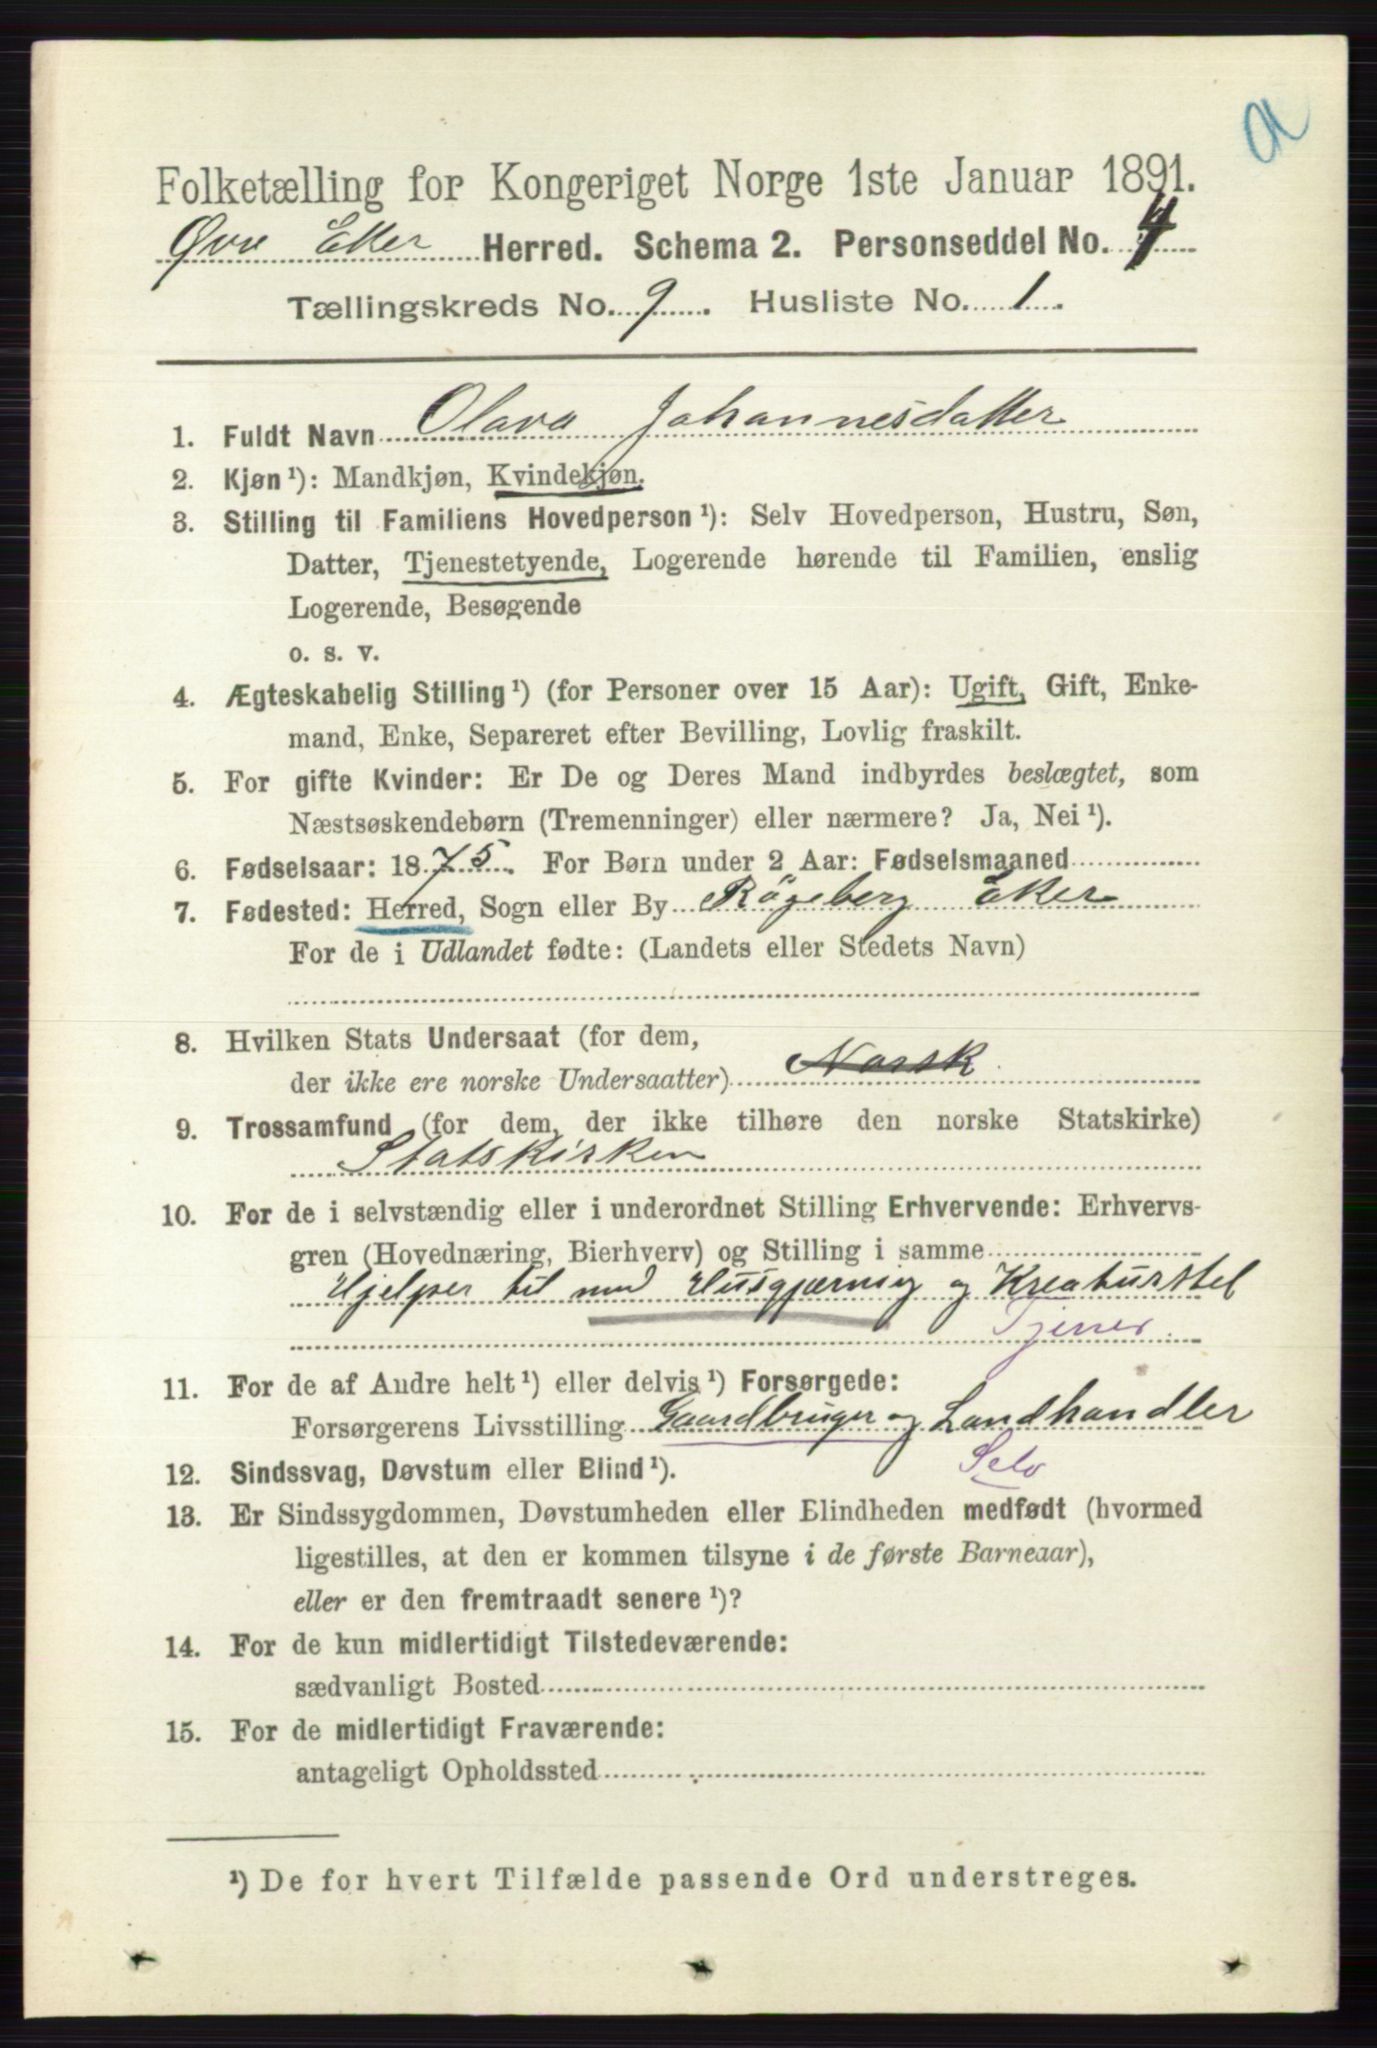 a
Folketælling for Kongeriget Norge 1ste Januar 1891.
Øvre Eker Herred. Schema 2. Personseddel No. 4
Tællingskreds No. 9. Husliste No. 1.
1. Fuldt Navn Olava Johannesdatter
2. Kjøn ¹): Mandkjøn, Kvindekjøn.
3. Stilling til Familiens Hovedperson ¹): Selv Hovedperson, Hustru, Søn,
Datter, Tjenestetyende, Logerende hørende til Familien, enslig
Logerende, Besøgende
o. s. v.
4. Ægteskabelig Stilling ¹) (for Personer over 15 Aar): Ugift, Gift, Enke-
mand, Enke, Separeret efter Bevilling, Lovlig fraskilt.
5. For gifte Kvinder: Er De og Deres Mand indbyrdes beslægtet, som
Næstsøskendebørn (Tremenninger) eller nærmere? Ja, Nei ¹).
6. Fødselsaar: 1875. For Børn under 2 Aar: Fødselsmaaned
7. Fødested: Herred, Sogn eller By Røgeberg Eker
For de i Udlandet fødte: (Landets eller Stedets Navn)
8. Hvilken Stats Undersaat (for dem,
der ikke ere norske Undersaatter) Norsk
9. Trossamfund (for dem, der ikke tilhøre den norske Statskirke)
Statskirken
10. For de i selvstændig eller i underordnet Stilling Erhvervende: Erhvervs-
gren (Hovednæring, Bierhverv) og Stilling i samme
Hjelper til med Husgjærnig og Kreaturstel
Tjener.
11. For de af Andre helt ¹) eller delvis ¹) Forsørgede:
Forsørgerens Livsstilling Gaardbruger og Landhandler
12. Sindssvag, Døvstum eller Blind ¹). Selv
13. Er Sindssygdommen, Døvstumheden eller Blindheden medfødt (hvormed
ligestilles, at den er kommen tilsyne i de første Barneaar),
eller er den fremtraadt senere ¹)?
14. For de kun midlertidigt Tilstedeværende:
sædvanligt Bosted
15. For de midlertidigt Fraværende:
antageligt Opholdssted
¹) De for hvert Tilfælde passende Ord understreges.